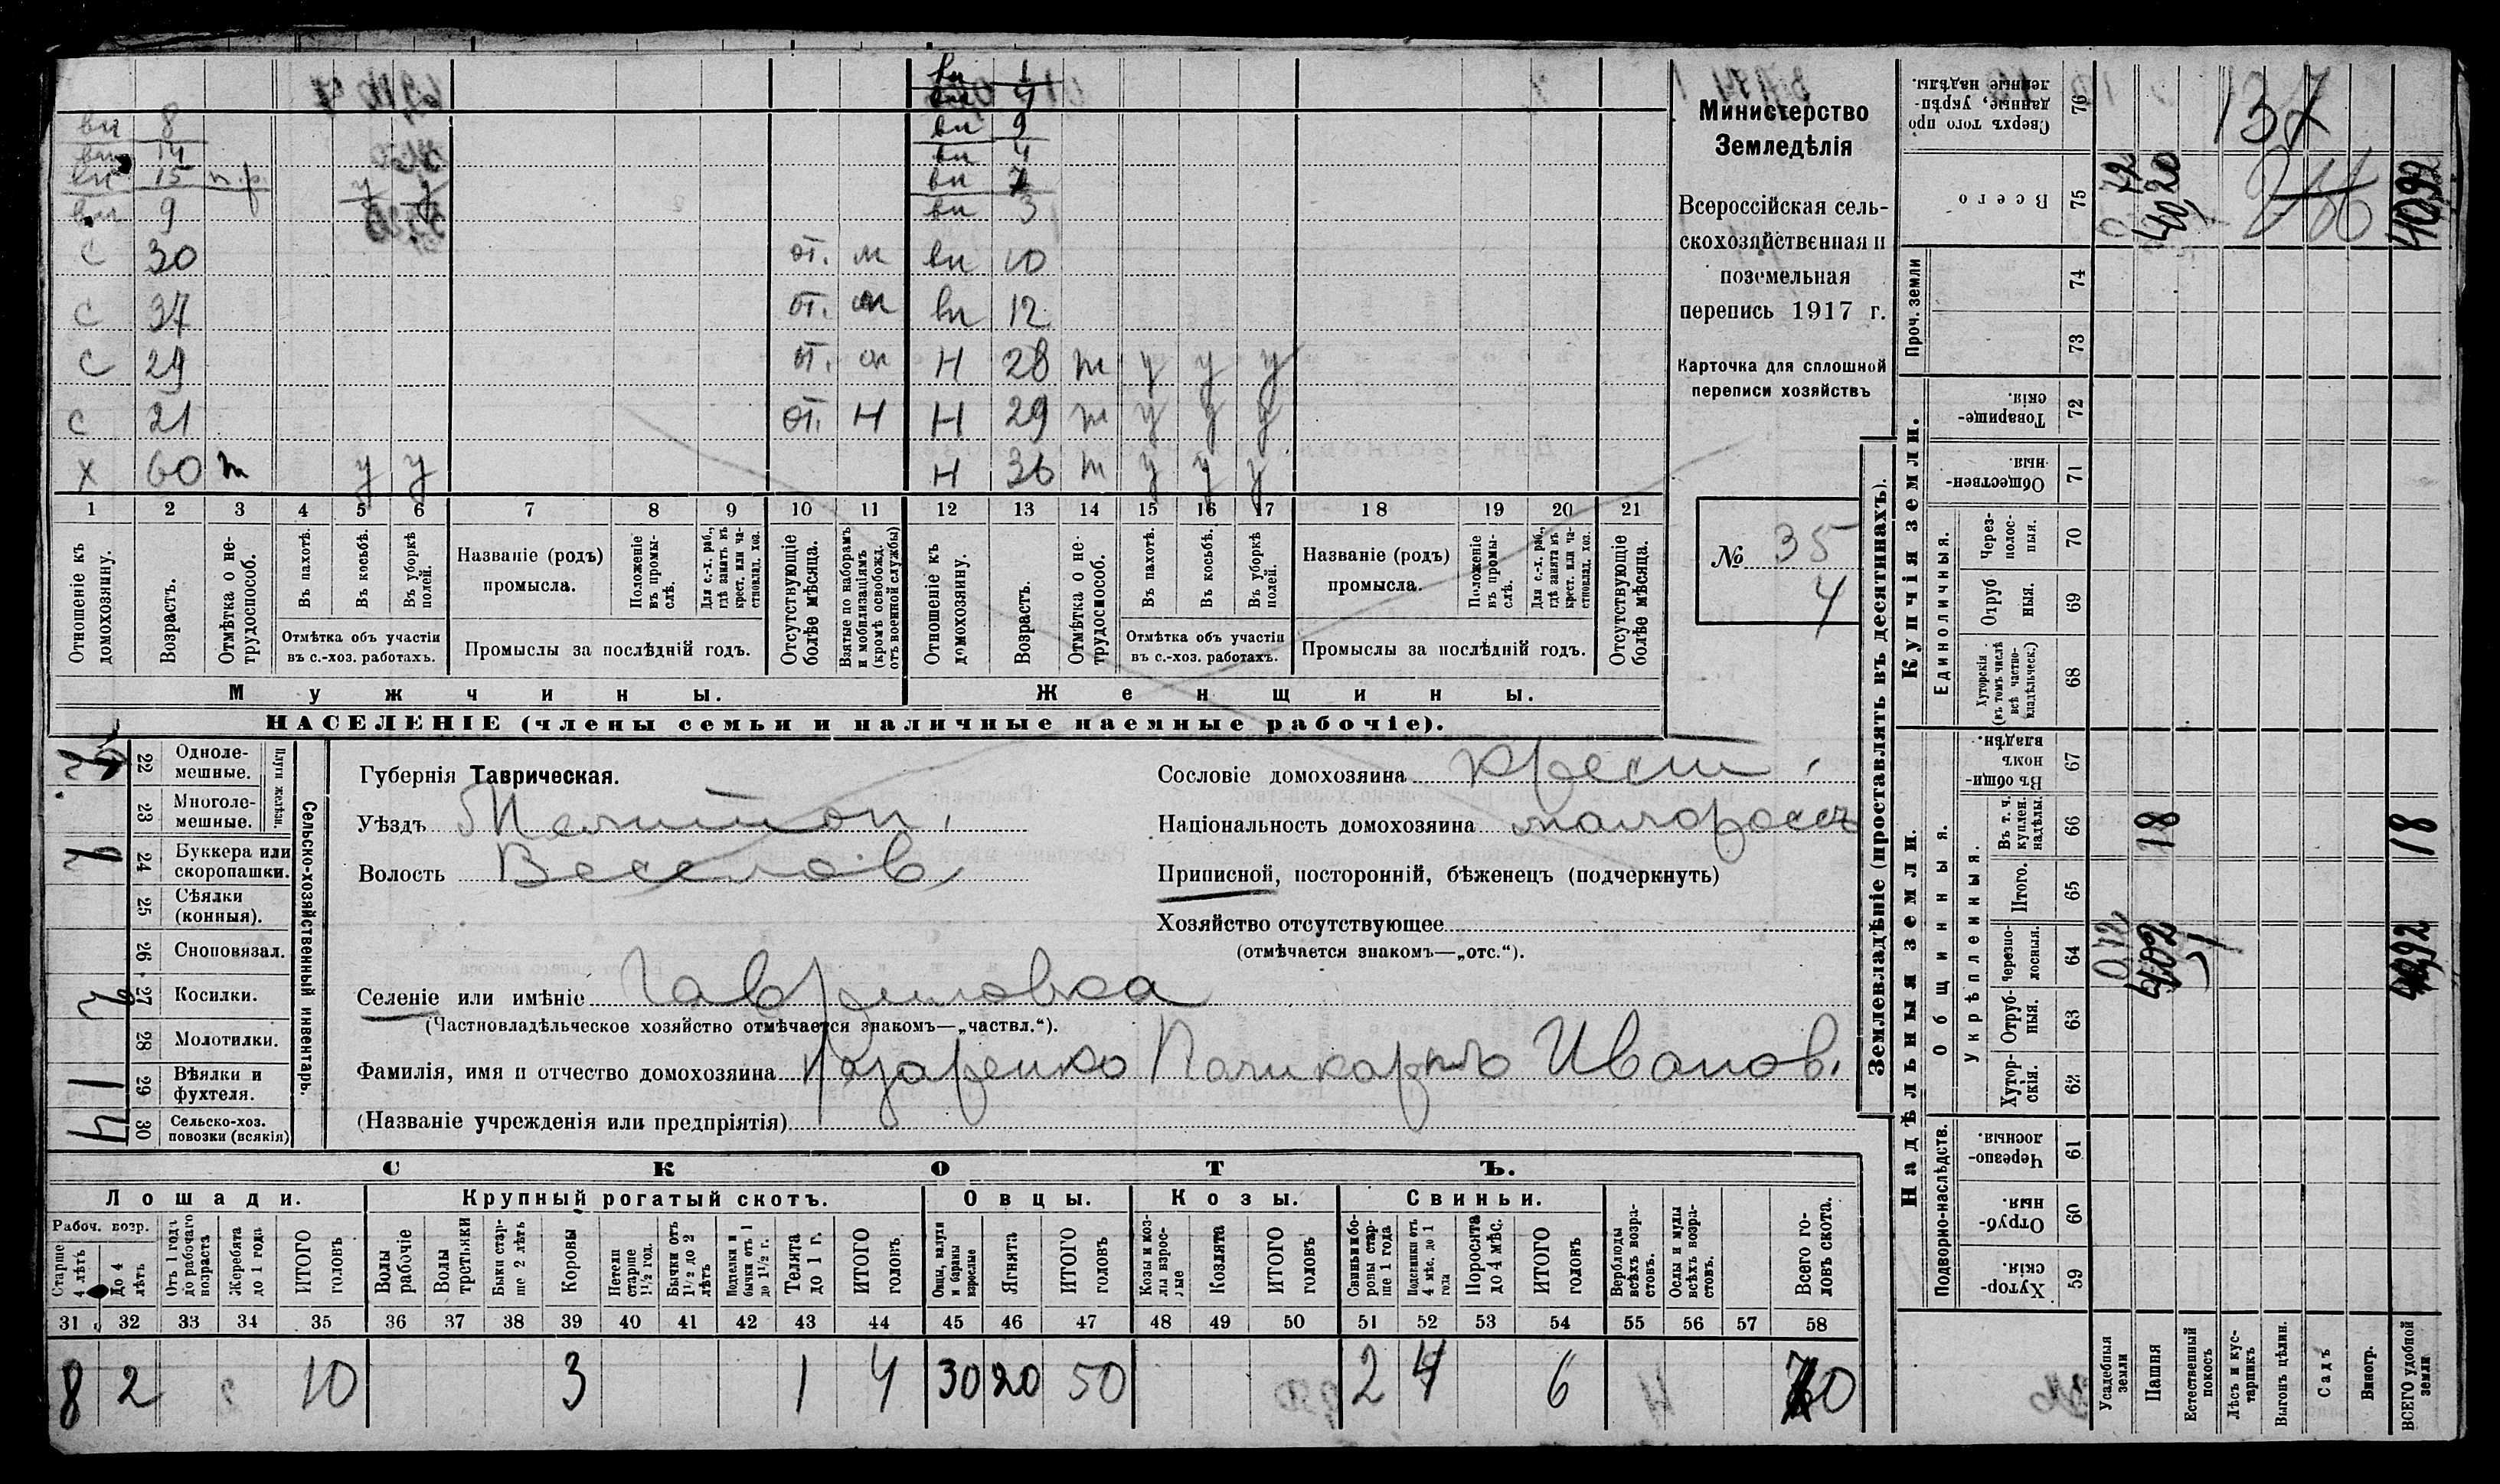 вн 1
вн 4
вн 8 вн 9
вн 14 вн 4
вн 15 п.р. у у вн 7
вн 9 вн 3
с 30 от. м вн 10
с 37 от. м вн 12
с 29 от. м Н 28 т у у у
с 21 от. Н Н 29 т у у у
х 60 т у у Н 36 т у у у
1 2 3 4 5 6 7 8 9 10 11 12 13 14 15 16 17 18 19 20 21
Отношеніе къ домохозяину.
Возрастъ.
Отмѣтка о не-
трудоспособ.
Въ пахотѣ.
Въ косьбѣ.
Въ уборкѣ
полей.
Отмѣтка объ участіи
въ с.-хоз. работахъ.
Названіе (родъ)
промысла.
Положеніе
въ промы-
слѣ.
Для с.-х. раб.,
гдѣ занятъ въ
крест. или ча-
стновлад. хоз.
Промыслы за послѣдній годъ.
Отсутствующіе
болѣе мѣсяца.
Взятые по наборамъ
и мобилизаціямъ
(кромѣ освобожд.
отъ военной службы)
Отношеніе къ
домохозяину.
Возрастъ.
Отмѣтка о не-
трудоспособ.
Въ пахотѣ.
Въ косьбѣ.
Въ уборкѣ
полей.
Отмѣтка объ участіи
въ с.-хоз. работахъ.
Названіе (родъ)
промысла.
Положеніе
въ промы-
слѣ.
Для с.-х. раб.,
гдѣ занята въ
крест. или ча-
стновлад. хоз.
Промыслы за послѣдній годъ.
Отсутствующіе
болѣе мѣсяца.
Мужчины.
Женщины.
НАСЕЛЕНІЕ (члены семьи и наличные наемные рабочіе).
Министерство
Земледѣлія
Всероссійская сель-
скохозяйственная и
поземельная
перепись 1917 г.
Карточка для сплошной
переписи хозяйствъ
№ 35
4
Сельско-хозяйственный инвентарь.
Плуги желѣзн.
22 Одноле-
мешные.
23 Многоле-
мешные.
24 Буккера или
скоропашки.
25 Сѣялки
(конныя).
26 Сноповязал.
27 Косилки.
28 Молотилки.
1 29 Вѣялки и
фухтеля.
4 30 Сельско-хоз.
повозки (всякія)
Губернія Таврическая.
Уѣздъ Мелитоп.
Волость Веселов.
Сословіе домохозяина крест.
Національность домохозяина малороссъ
Приписной, посторонній, бѣженецъ (подчеркнуть)
Хозяйство отсутствующее
(отмѣчается знакомъ—„отс.“).
Селеніе или имѣніе Гавриловка
(Частновладѣльческое хозяйство отмѣчается знакомъ—„частвл.“).
Фамилія, имя и отчество домохозяина Назаренко Паликарпъ Иванов.
(Названіе учрежденія или предпріятія)
СКОТЪ.
Лошади. Крупный рогатый скотъ. Овцы. Козы. Свиньи.
Рабоч. возр.
Старше
4 лѣтъ
До 4
лѣтъ
Отъ 1 года
до рабочаго
возраста
Жеребята
до 1 года
ИТОГО
головъ
Волы
рабочіе
Волы
третьяки
Быки стар-
ше 2 лѣтъ
Коровы
Нетели
старше
1½ год.
Бычки отъ
1½ до 2
лѣтъ
Подтелки и
бычки отъ 1
до 1½ г.
Телята
до 1 г.
ИТОГО
головъ
Овцы, валухи
и бараны
взрослые
Ягнята
ИТОГО
головъ
Козы и коз-
лы взрос-
лые
Козлята
ИТОГО
головъ
Свиньи и бо-
ровы стар-
ше 1 года
Подсвинки отъ
4 мѣс. до 1
года
Поросята
до 4 мѣс.
ИТОГО
головъ
Верблюды
всѣхъ возра-
стовъ.
Ослы и мулы
всѣхъ возра-
стовъ.
Всего го-
ловъ скота.
31 32 33 34 35 36 37 38 39 40 41 42 43 44 45 46 47 48 49 50 51 52 53 54 55 56 57 58
8 2 10 3 1 4 30 20 50 2 4 6 70
Землевладѣніе (проставлять въ десятинахъ).
Надѣльныя земли.
Купчія земли.
Проч. земли
Подворно-наслѣдств.
Общинныя.
Укрѣпленныя.
Единоличныя.
Хутор-
скія. 59
Отруб-
ныя. 60
Черезпо-
лосныя. 61
Хутор-
скія. 62
Отруб-
ныя. 63
Черезпо-
лосныя. 64
Итого. 65
Въ т. ч.
куплен.
надѣлы. 66
Въ общи-
номъ
владѣн. 67
Хуторскія
(въ томъ числѣ
всѣ частно-
владѣльческ.) 68
Отруб-
ныя. 69
Через-
полос-
ныя. 70
Обществен-
ныя. 71
Товарище-
скія. 72
73
74
Всего 75
Сверхъ того про
данные, укрѣп-
ленные надѣлы. 76
Усадебныя
земли
Пашня
Естественный
покосъ
Лѣсъ и кус-
тарникъ
Выгонъ цѣлин.
Садъ
Виногр.
ВСЕГО удобной
земли
18
18
137